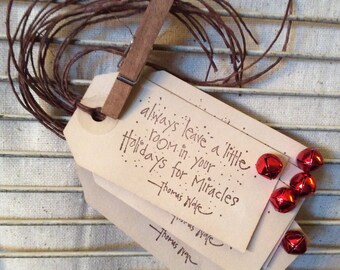 always leave a little
room in your
Holidays for Miracles
—Thomas Wake
Thomas Wake